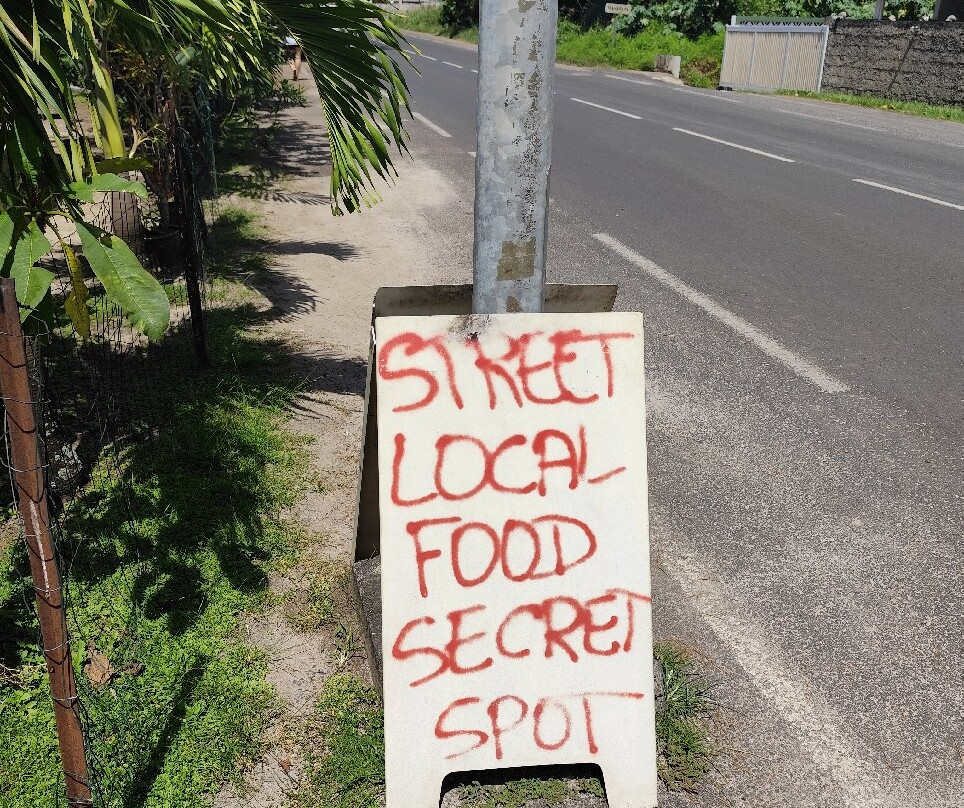 STREET
LOCAL
FOOD
SECRET
SPOT